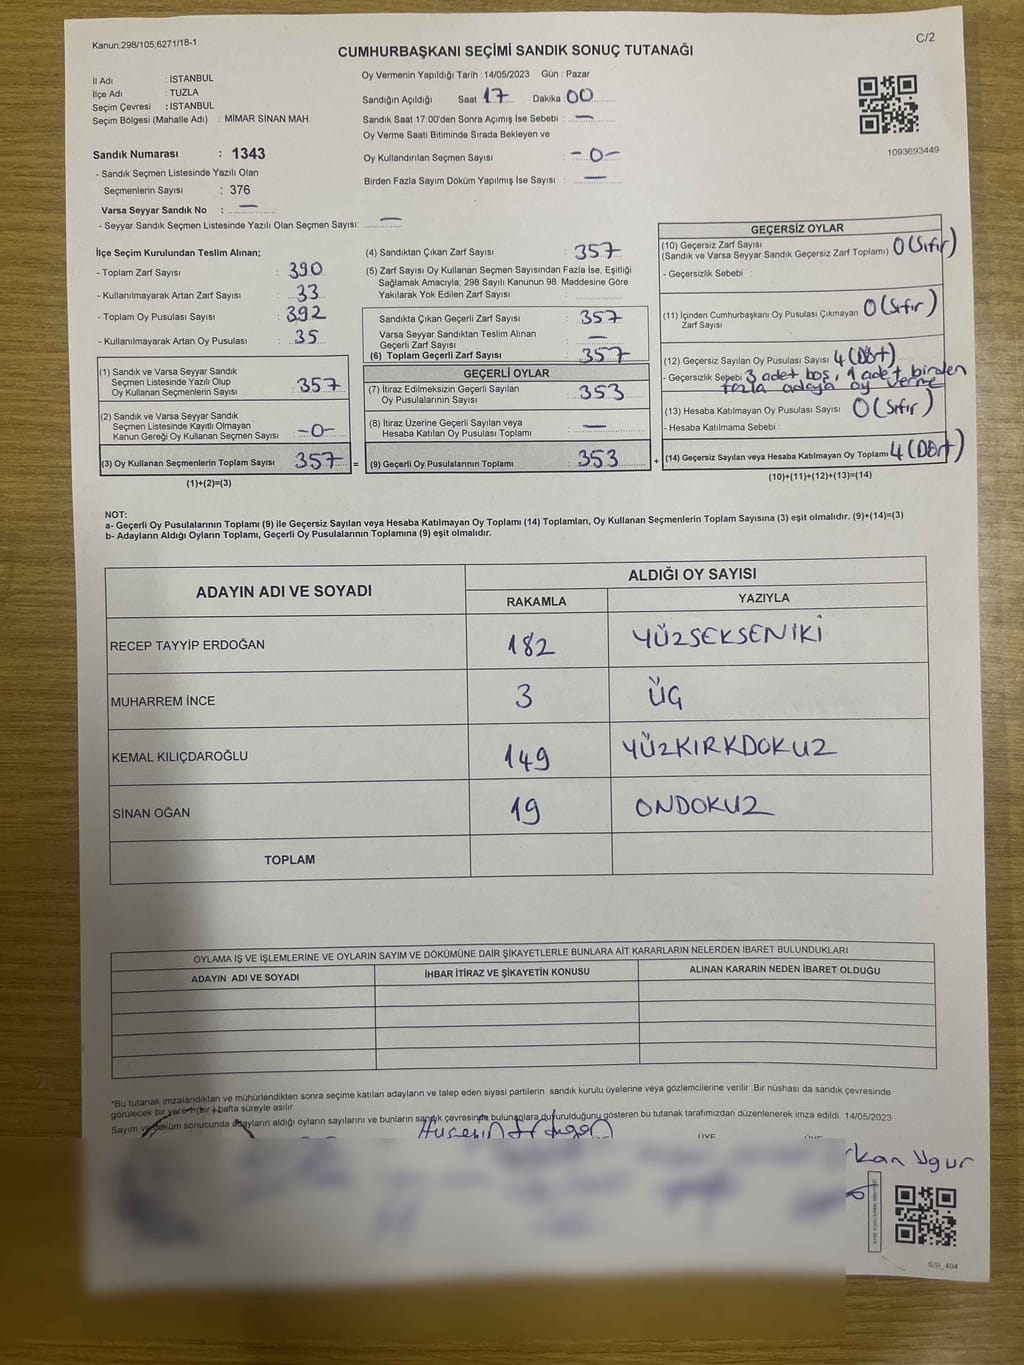 Kanun;298/105;6271/18-1
C/2
CUMHURBAŞKANI SEÇİMİ SANDIK SONUÇ TUTANAĞI
İl Adı : İSTANBUL
İlçe Adı : TUZLA
Seçim Çevresi : İSTANBUL
Seçim Bölgesi (Mahalle Adı) : MİMAR SİNAN MAH.
Sandık Numarası : 1343
- Sandık Seçmen Listesinde Yazılı Olan
Seçmenlerin Sayısı : 376
Varsa Seyyar Sandık No : —
- Seyyar Sandık Seçmen Listesinde Yazılı Olan Seçmen Sayısı: —
Oy Vermenin Yapıldığı Tarih : 14/05/2023 Gün : Pazar
Sandığın Açıldığı Saat 17 Dakika 00
Sandık Saat 17:00'den Sonra Açımış İse Sebebi : —
Oy Verme Saati Bitiminde Sırada Bekleyen ve
Oy Kullandırılan Seçmen Sayısı : -0-
Birden Fazla Sayım Döküm Yapılmış İse Sayısı : —
1093693449
İlçe Seçim Kurulundan Teslim Alınan;
- Toplam Zarf Sayısı : 390
- Kullanılmayarak Artan Zarf Sayısı : 33
- Toplam Oy Pusulası Sayısı : 392
- Kullanılmayarak Artan Oy Pusulası : 35
(1) Sandık ve Varsa Seyyar Sandık
Seçmen Listesinde Yazılı Olup
Oy Kullanan Seçmenlerin Sayısı : 357
(2) Sandık ve Varsa Seyyar Sandık
Seçmen Listesinde Kayıtlı Olmayan
Kanun Gereği Oy Kullanan Seçmen Sayısı : -0-
(3) Oy Kullanan Seçmenlerin Toplam Sayısı : 357 =
(1)+(2)=(3)
(4) Sandıktan Çıkan Zarf Sayısı : 357
(5) Zarf Sayısı Oy Kullanan Seçmen Sayısından Fazla İse, Eşitliği
Sağlamak Amacıyla; 298 Sayılı Kanunun 98. Maddesine Göre
Yakılarak Yok Edilen Zarf Sayısı :
Sandıkta Çıkan Geçerli Zarf Sayısı : 357
Varsa Seyyar Sandıktan Teslim Alınan
Geçerli Zarf Sayısı : —
(6) Toplam Geçerli Zarf Sayısı : 357
GEÇERLİ OYLAR
(7) İtiraz Edilmeksizin Geçerli Sayılan
Oy Pusulalarının Sayısı : 353
(8) İtiraz Üzerine Geçerli Sayılan veya
Hesaba Katılan Oy Pusulası Toplamı : —
(9) Geçerli Oy Pusulalarının Toplamı : 353 +
GEÇERSİZ OYLAR
(10) Geçersiz Zarf Sayısı
(Sandık ve Varsa Seyyar Sandık Geçersiz Zarf Toplamı) 0 (Sıfır)
- Geçersizlik Sebebi :
(11) İçinden Cumhurbaşkanı Oy Pusulası Çıkmayan 0 (Sıfır)
Zarf Sayısı
(12) Geçersiz Sayılan Oy Pusulası Sayısı 4 (Dört)
- Geçersizlik Sebebi 3 adet boş, 1 adet birden
fazla adaya oy verme
(13) Hesaba Katılmayan Oy Pusulası Sayısı 0 (Sıfır)
- Hesaba Katılmama Sebebi :
(14) Geçersiz Sayılan veya Hesaba Katılmayan Oy Toplamı 4 (Dört)
(10)+(11)+(12)+(13)=(14)
NOT:
a- Geçerli Oy Pusulalarının Toplamı (9) ile Geçersiz Sayılan veya Hesaba Katılmayan Oy Toplamı (14) Toplamları, Oy Kullanan Seçmenlerin Toplam Sayısına (3) eşit olmalıdır. (9)+(14)=(3)
b- Adayların Aldığı Oyların Toplamı, Geçerli Oy Pusulalarının Toplamına (9) eşit olmalıdır.
ADAYIN ADI VE SOYADI ALDIĞI OY SAYISI
RAKAMLA YAZIYLA
RECEP TAYYİP ERDOĞAN 182 YÜZSEKSENİKİ
MUHARREM İNCE 3 ÜÇ
KEMAL KILIÇDAROĞLU 149 YÜZKIRKDOKUZ
SİNAN OĞAN 19 ONDOKUZ
TOPLAM
OYLAMA İŞ VE İŞLEMLERİNE VE OYLARIN SAYIM VE DÖKÜMÜNE DAİR ŞİKAYETLERLE BUNLARA AİT KARARLARIN NELERDEN İBARET BULUNDUKLARI
ADAYIN ADI VE SOYADI İHBAR İTİRAZ VE ŞİKAYETİN KONUSU ALINAN KARARIN NEDEN İBARET OLDUĞU
*Bu tutanak imzalandıktan ve mühürlendikten sonra seçime katılan adayların ve talep eden siyasi partilerin sandık kurulu üyelerine veya gözlemcilerine verilir .Bir nüshası da sandık çevresinde
görülecek bir yere 1 (bir) hafta süreyle asılır.
Sayım ve döküm sonucunda adayların aldığı oyların sayılarını ve bunların sandık çevresinde bulunanlara duyurulduğunu gösteren bu tutanak tarafımızdan düzenlenerek imza edildi. 14/05/2023
ÜYE
rkan Uğur
SSI_404